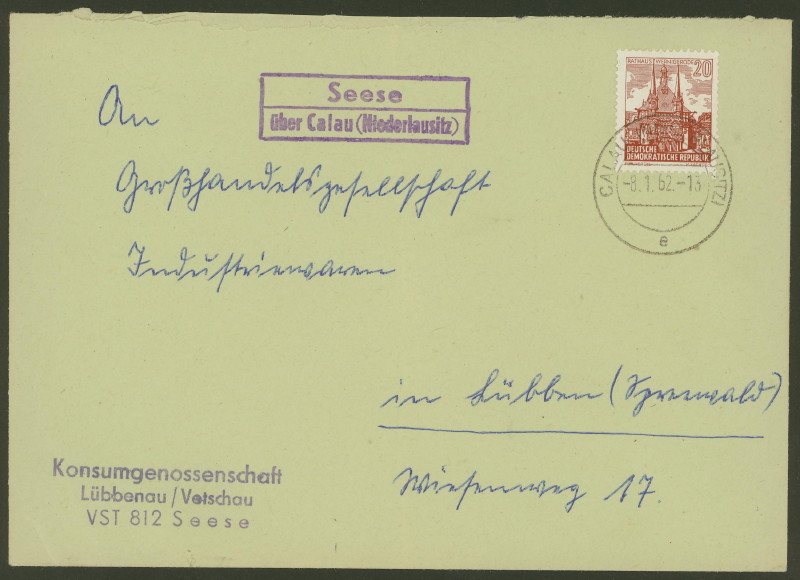 Seese
über Calau (Niederlausitz)
RATHAUS WERNIGERODE 20
DEUTSCHE
DEMOKRATISCHE REPUBLIK
CALAU
-8.1.62.-13
e
An
Großhandelsgesellschaft
Industriewaren
in Lübben (Spreewald)
Wiesenweg 17.
Konsumgenossenschaft
Lübbenau/Vetschau
VST 812 Seese